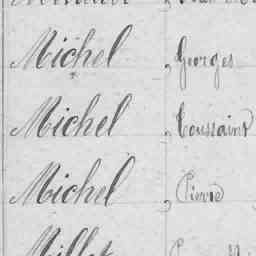 Michel, Georges
Michel, Toussaint
Michel, Pierre
Millet